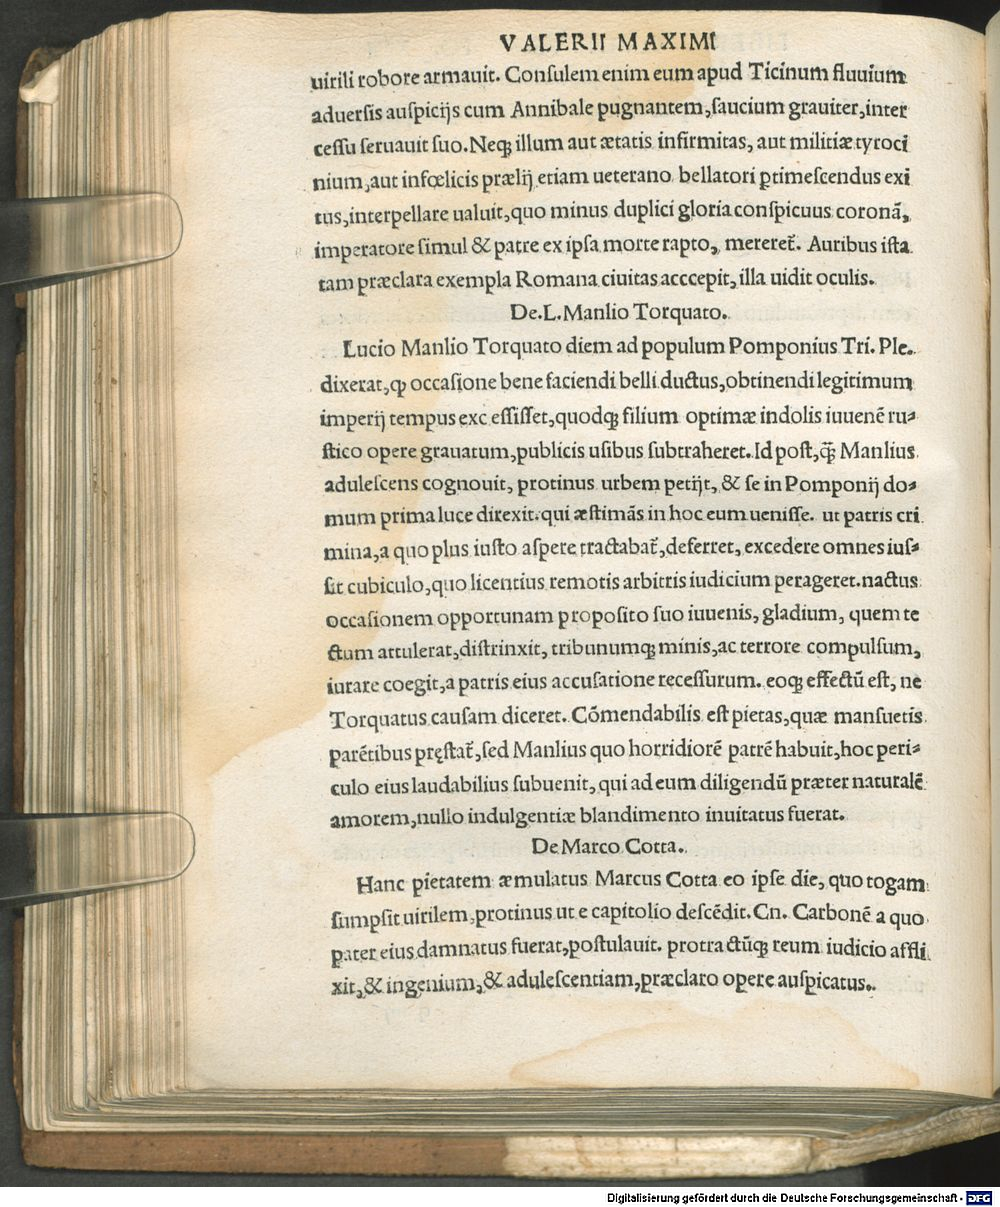 VALERII MAXIMI
uirili robore armauit. Consulem enim eum apud Ticinum fluuium
aduersis auspicijs cum Annibale pugnantem, saucium grauiter, inter
cessu seruauit suo. Neqꝫ illum aut ætatis infirmitas, aut militiæ tyroci
nium, aut infœlicis prælij etiam ueterano bellatori ꝑtimescendus exi
tus, interpellare ualuit, quo minus duplici gloria conspicuus coronã,
imperatore simul & patre ex ipsa morte rapto, mereret᷑. Auribus ista
tam præclara exempla Romana ciuitas acccepit, illa uidit oculis.
De. L. Manlio Torquato.
Lucio Manlio Torquato diem ad populum Pomponius Tri. Ple.
dixerat, ꝙ occasione bene faciendi belli ductus, obtinendi legitimum
imperij tempus exc essisset, quodqꝫ filium optimæ indolis iuuenẽ ru-
stico opere grauatum, publicis usibus subtraheret. Id post, q̃ꝫ Manlius
adulescens cognouit, protinus urbem petijt, & se in Pomponij do-
mum prima luce direxit. qui æstimãs in hoc eum uenisse. ut patris cri
mina, a quo plus iusto aspere tractabat᷑, deferret, excedere omnes ius-
sit cubiculo, quo licentius remotis arbitris iudicium perageret. nactus
occasionem opportunam proposito suo iuuenis, gladium, quem te
ctum attulerat, distrinxit, tribunumqꝫ minis, ac terrore compulsum,
iurare coegit, a patris eius accusatione recessurum. eoqꝫ effectũ est, ne
Torquatus causam diceret. Cõmendabilis est pietas, quæ mansuetis
parẽtibus pręstat᷑, sed Manlius quo horridiorẽ patrẽ habuit, hoc peri-
culo eius laudabilius subuenit, qui ad eum diligendũ præter naturalẽ
amorem, nullo indulgentiæ blandimento inuitatus fuerat.
De Marco Cotta.
Hanc pietatem æmulatus Marcus Cotta eo ipse die, quo togam
sumpsit uirilem, protinus ut e capitolio descẽdit. Cn. Carbonẽ a quo
pater eius damnatus fuerat, postulauit. protractũqꝫ reum iudicio affli
xit, & ingenium, & adulescentiam, præclaro opere auspicatus.
Digitalisierung gefördert durch die Deutsche Forschungsgemeinschaft - DFG